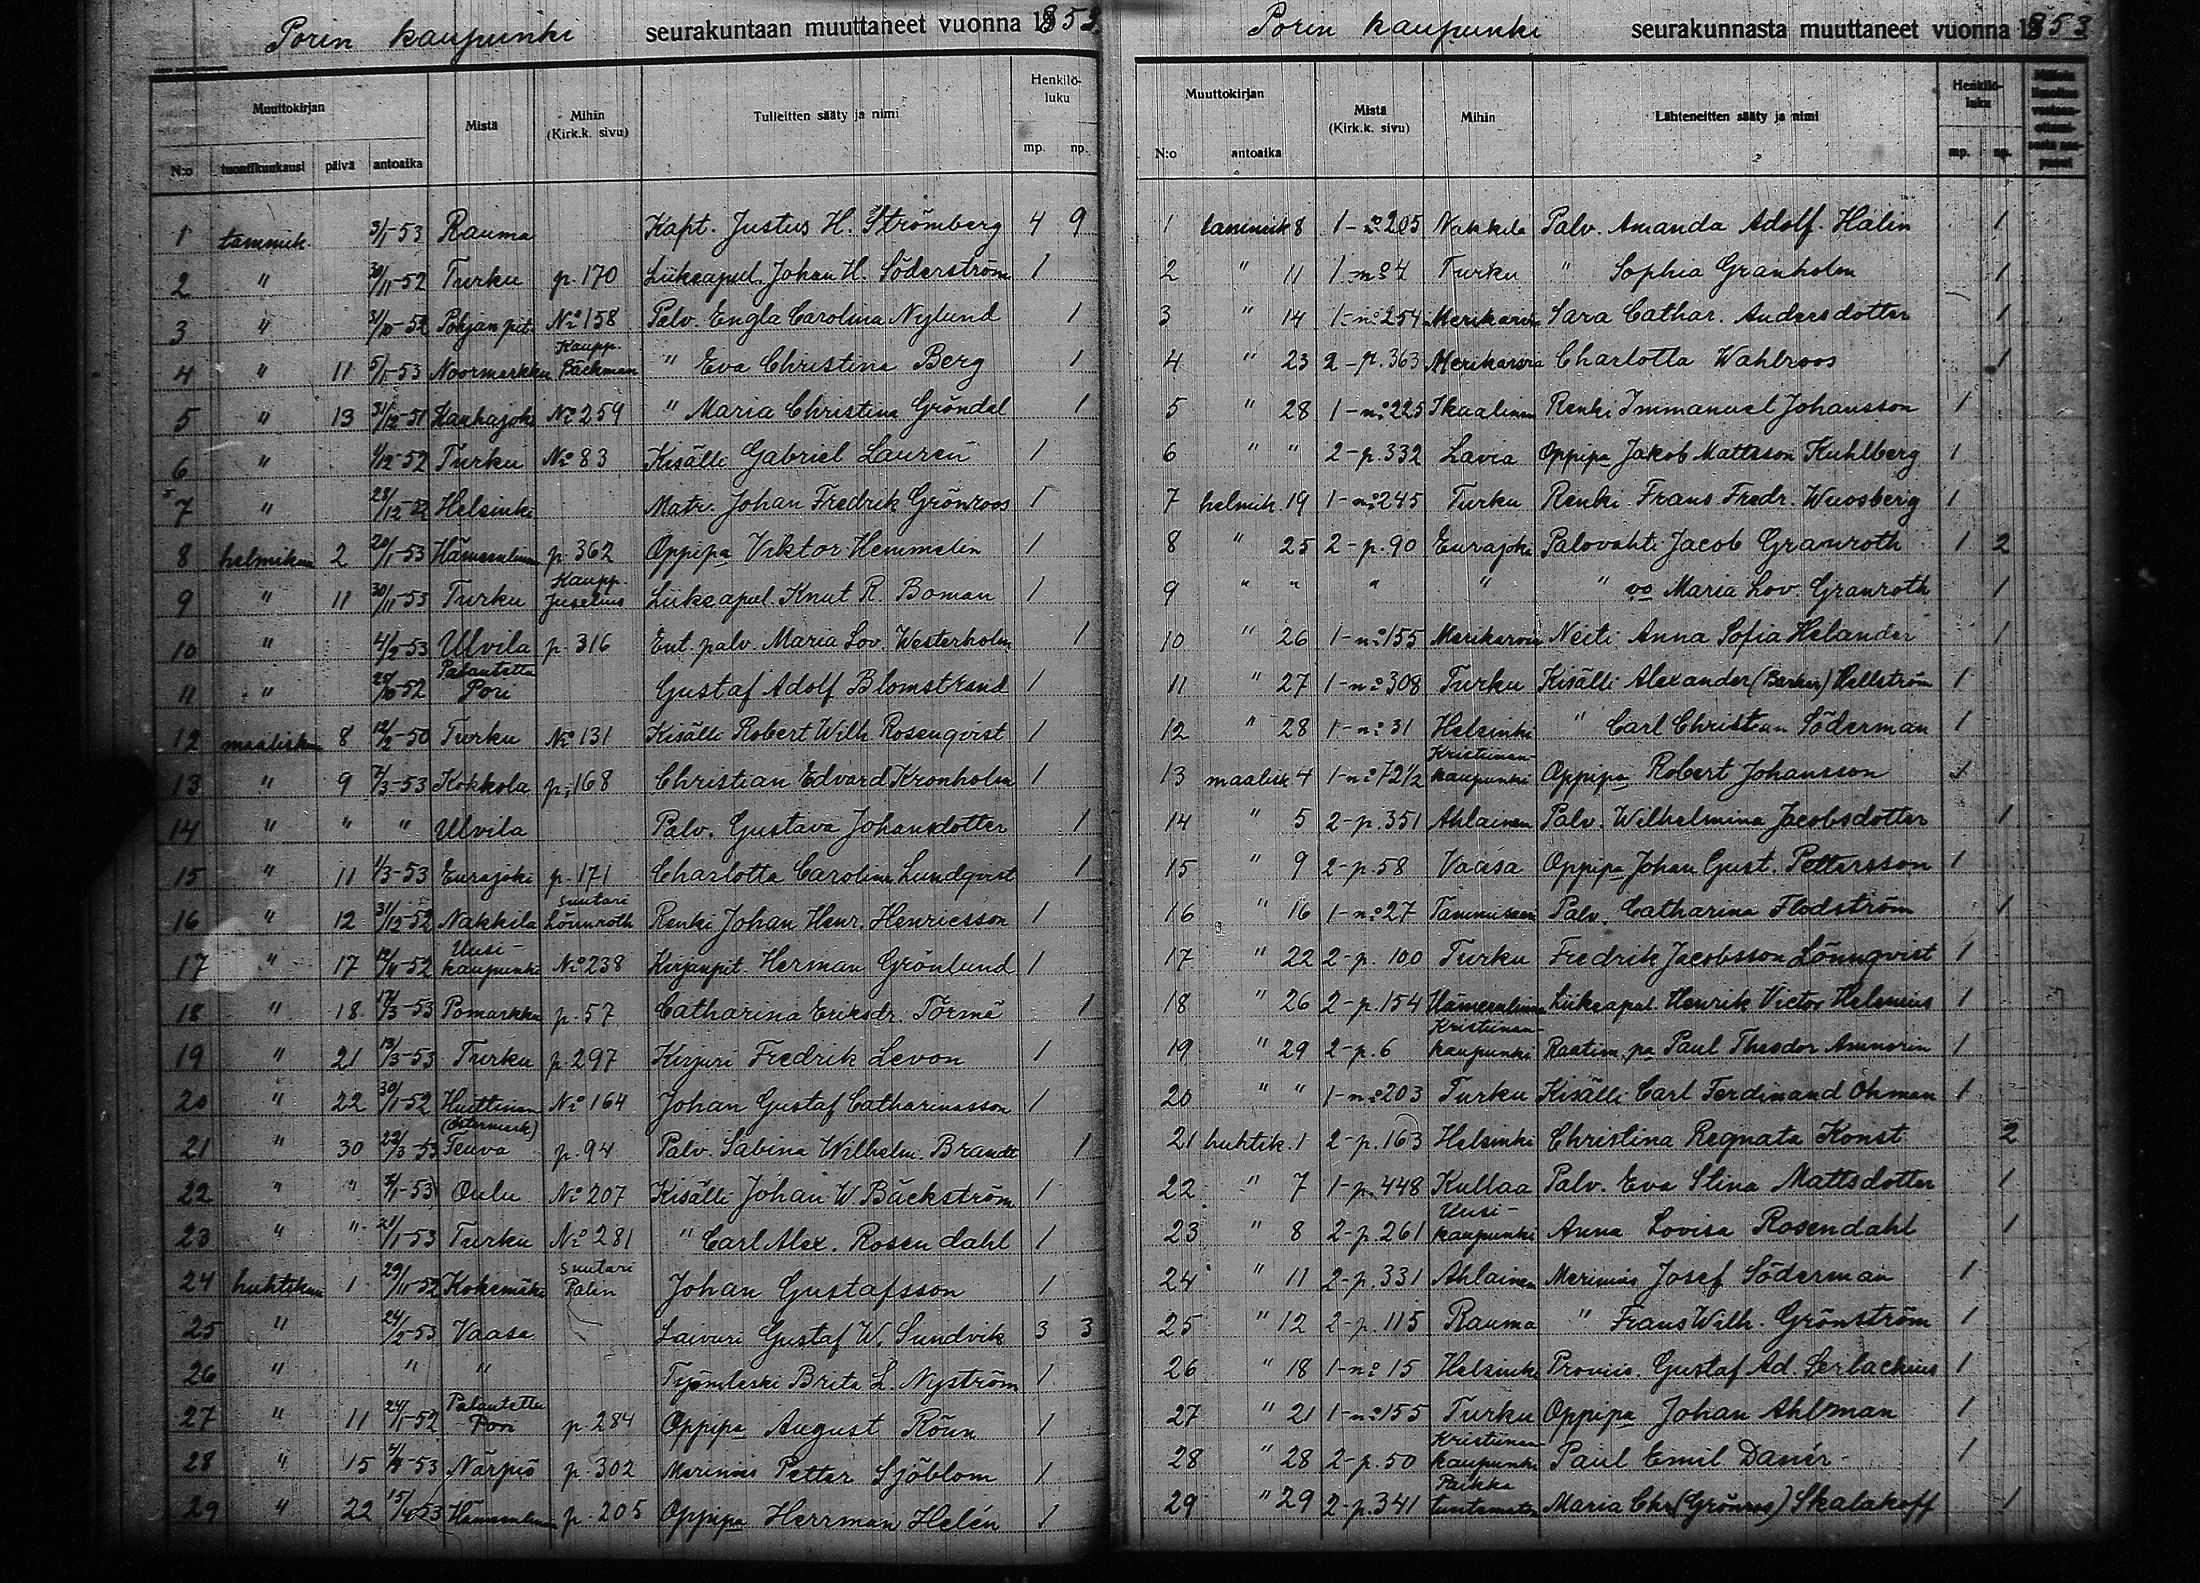 Porin kaupunki seurakuntaan muuttaneet vuonna 1853.
Muuttokirjan Mistä Mihin (Kirk.k. sivu) Tulleitten sääty ja nimi Henkilö-luku
N:o tuontikuukausi päivä antoaika mp. np.
1 tammik. 3/1-53 Rauma Kapt. Justus H. Strömberg 4 9
2 " 30/11-52 Turku p. 170 Liikeapul. Johan H. Söderström 1
3 " 31/10-52 Pohjan pit. No 158 Palv. Engla Carolina Nylund 1
4 " 11 5/1-53 Noormarkku Kaupp. Bäckman " Eva Christina Berg 1
5 " 13 31/12-51 Kauhajoki No 259 " Maria Christina Gröndal 1
6 " 1/12-52 Turku No 83 Kisälli Gabriel Laurén 1
7 " 28/12-52 Helsinki Matr. Johan Fredrik Grönroos 1
8 helmikuu 2 20/1-53 Hämeenlinna p. 362 Oppipa Viktor Hemmelin 1
9 " 11 30/11-53 Turku Kaupp. Juselius Liikeapul. Knut R. Boman 1
10 " 4/2-53 Ulvila p. 316 Ent. palv. Maria Lov. Westerholm 1
11 " 25/10-52 Palautettu Pori Gustaf Adolf Blomstrand 1
12 maalisk. 8 12/2-50 Turku No 131 Kisälli Robert Wilh. Rosenqvist 1
13 " 9 7/3-53 Kokkola p. 168 Christian Edvard Kronholm 1
14 " " " Ulvila Palv. Gustava Johansdotter 1
15 " 11 1/3-53 Eurajoki p. 171 Charlotta Carolina Lundqvist 1
16 " 12 31/12-52 Nakkila suutari Lönnroth Renki Johan Henr. Henricsson 1
17 " 17 12/11-52 Uusi-kaupunki No 238 Kirjanpit. Herman Grönlund 1
18 " 18 17/3-53 Pomarkku p. 57 Catharina Eriksdr. Törmä 1
19 " 21 13/3-53 Turku p. 297 Kirjuri Fredrik Levon 1
20 " 22 30/1-52 Huittinen No 164 Johan Gustaf Catharinasson 1
21 " 30 22/3-53 (Östermark) Teuva p. 94 Palv. Sabina Wilhelm. Brandt 1
22 " " 7/1-53 Oulu No 207 Kisälli Johan W. Bäckström 1
23 " " 21/1-53 Turku No 281 " Carl Alex. Rosendahl 1
24 huhtikuu 1 29/11-52 Kokemäki suutari Palin Johan Gustafsson 1
25 " 24/2-53 Vaasa Laivuri Gustaf W. Sundvik 3 3
26 " " " Työmleski Brita L. Nyström 1
27 " 11 24/1-52 Palautettu Pori p. 284 Oppipa August Rönn 1
28 " 15 -53 Närpiö p. 302 Merimies Petter Sjöblom 1
29 " 22 15/4-53 Hämeenlinna p. 205 Oppipa Herrman Helén 1
Porin kaupunki seurakunnasta muuttaneet vuonna 1853
Muuttokirjan Mistä (Kirk.k. sivu) Mihin Lähteneitten sääty ja nimi Henkilö-luku
N:o antoaika mp. np.
1 tammik 8 1-no 205 Nakkila Palv. Amanda Adolf. Halin 1
2 " 11 1-no 4 Turku " Sophia Granholm 1
3 " 14 1-no 254 Merikarvia Sara Cathar. Andersdotter 1
4 " 23 2-p. 363 Merikarvia Charlotta Wahlroos 1
5 " 28 1-no 225 Ikaalinen Renki Immanuel Johansson 1
6 " " 2-p. 332 Lavia Oppipa Jakob Mattsson Kuhlberg 1
7 helmik. 19 1-no 245 Turku Renki Frans Fredr. Wuosberg 1
8 " 25 2-p. 90 Eurajoki Palovahti Jacob Granroth 1 2
9 " " " " " vo Maria Lov. Granroth 1
10 " 26 1-no 155 Merikarvia Neiti Anna Sofia Helander 1
11 " 27 1-no 308 Turku Kisälli Alexander (Barker) Hellström 1
12 " 28 1-no 31 Helsinki " Carl Christian Söderman 1
13 maalisk 4 1-no 72 1/2 Kristiinan-kaupunki Oppipa Robert Johansson 1
14 " 5 2-p. 351 Ahlainen Palv. Wilhelmina Jacobsdotter 1
15 " 9 2-p. 58 Vaasa Oppipa Johan Gust. Pettersson 1
16 " 16 1-no 27 Tammisaari Palv. Catharina Flodström 1
17 " 22 2-p. 100 Turku Fredrik Jacobsson Lönnqvist 1
18 " 26 2-p. 154 Hämeenlinna Liikeapul. Henrik Victor Helenius 1
19 " 29 2-p. 6 Kristiinan-kaupunki Raatim. pa Paul Theodor Ammorin 1
20 " " 1-no 203 Turku Kisälli Carl Ferdinand Öhman 1
21 huhtik. 1 2-p. 163 Helsinki Christina Regnata Konst 2
22 " 7 1-p. 448 Kullaa Palv. Eva Stina Mattsdotter 1
23 " 8 2-p. 261 Uusi-kaupunki Anna Lovisa Rosendahl 1
24 " 11 2-p. 331 Ahlainen Merimies Josef Söderman 1
25 " 12 2-p. 115 Rauma " Frans Wilh. Grönström 1
26 " 18 1-no 15 Helsinki Proviis. Gustaf Ad. Serlachius 1
27 " 21 1-no 155 Turku Oppipa Johan Ahlman 1
28 " 28 2-p. 50 Kristiinan kaupunki Paul Emil Danér 1
29 " 29 2-p. 341 Paikka tuntematon Maria Chr. (Grönroos) Skalakoff 1